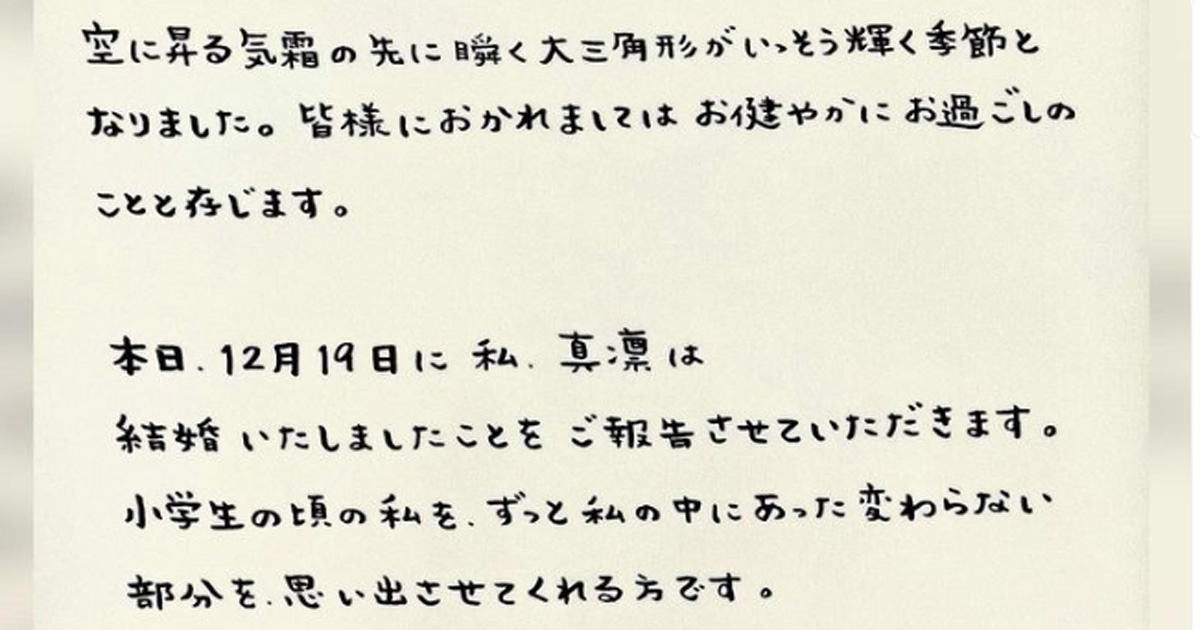 空に昇る気霜の先に瞬く大三角形がいっそう輝く季節と
なりました。皆様におかれましてはお健やかにお過ごしの
ことと存じます。
本日、12月19日に私、真凛は
結婚いたしましたことをご報告させていただきます。
小学生の頃の私を、ずっと私の中にあった変わらない
部分を、思い出させてくれる方です。